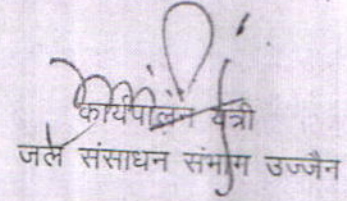 कार्यपालन यंत्री
जल संसाधन संभाग उज्जैन